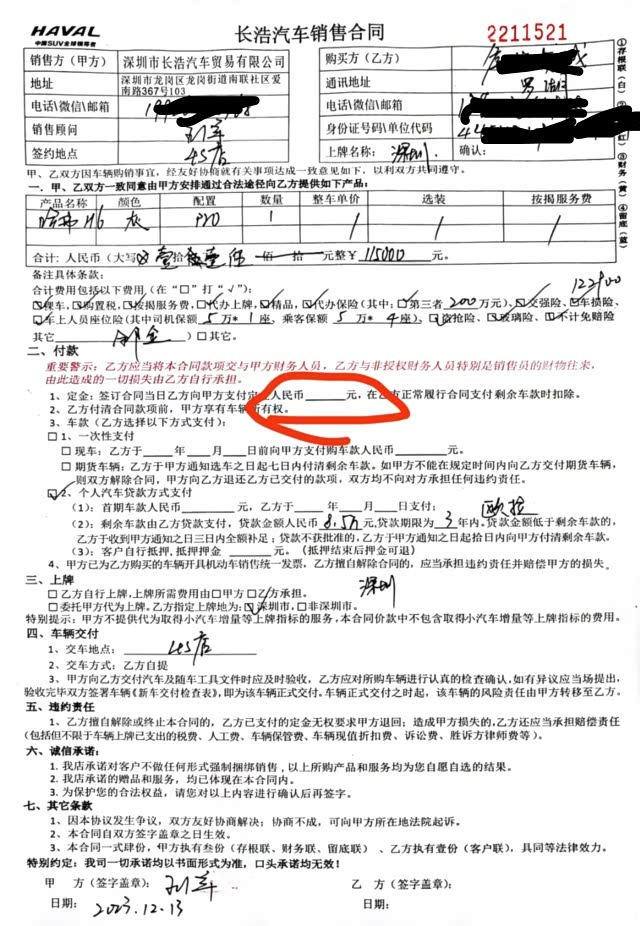 HAVAL
中国SUV全球领导者
长浩汽车销售合同
2211521
销售方（甲方） 深圳市长浩汽车贸易有限公司
地址 深圳市龙岗区龙岗街道南联社区爱南路367号103
电话\微信\邮箱
销售顾问
签约地点 4S店
购买方（乙方）
通讯地址
电话\微信\邮箱
身份证号码\单位代码
上牌名称： 深圳 确认：
①存根联（白）
③财务（黄）
④留底（蓝）
甲、乙双方因车辆购销事宜，经友好协商就有关事项达成一致意见如下，以利双方共同遵守。
一.甲、乙双方一致同意由甲方安排通过合法途径向乙方提供如下产品：
产品名称 颜色 配置 数量 整车单价 选装 按揭服务费
哈弗H6 灰 PRO 1 / / /
合计：人民币（大写） 壹拾 壹万 伍仟 佰 拾 元整￥ 115000
备注具体条款：
合计费用包括以下费用（在“□”打“√”）： 122900
☑裸车，☑购置税，☑按揭服务费，☑代办上牌，☑精品，☑代办保险（其中：☑第三者 200 万元）、☑交强险、☑车损险、
☑车上人员座位险（其中司机保额 5 万* 1 座，乘客保额 5 万* 4 座）、☑盗抢险、☑玻璃险、☑不计免赔险
其它 □其它。
二、付款
重要警示：乙方应当将本合同款项交与甲方财务人员，乙方与非授权财务人员特别是销售员的财物往来，
由此造成的一切损失由乙方自行承担。
1、定金：签订合同当日乙方向甲方支付定金人民币______元，在乙方正常履行合同支付剩余车款时扣除。
2、乙方付清合同款项前，甲方享有车辆所有权。
3、车款（乙方选择以下方式支付）：
□1、一次性支付
□现车：乙方于______年____月____日前向甲方支付购车款人民币______元。
□期货车辆：乙方于甲方通知选车之日起七日内付清剩余车款。如甲方不能在规定时间内向乙方交付期货车辆，
则双方解除合同，甲方向乙方退还乙方已交付的款项，双方均不向对方承担任何违约责任。
☑2、个人汽车贷款方式支付
（1）：首期车款人民币______元，乙方于____年____月____日支付：
（2）：剩余车款由乙方贷款支付，贷款金额人民币 8.5万 元，贷款期限为 3 年内。贷款金额低于剩余车款的，
乙方于收到甲方通知之日三日内全额补足；贷款不获批准的，乙方于甲方通知之日起拾日内向甲方付清剩余车款。
（3）：客户自行抵押，抵押押金______元。（抵押结束后押金可退）
4、甲方已为乙方购买的车辆开具机动车销售统一发票，乙方擅自解除合同的，应当承担违约责任并赔偿甲方的损失。
三、上牌
□乙方自行上牌，上牌所需费用由□甲方□乙方承担。 深圳
□委托甲方代为上牌。乙方指定上牌地为：☑深圳市，□非深圳市。
特别提示：甲方不提供代为取得小汽车增量等上牌指标的服务，本合同价款中不包含取得小汽车增量等上牌指标的费用。
四、车辆交付
1、交车地点： 4S店
2、交车方式：乙方自提
3、甲方向乙方交付汽车及随车工具文件时应及时验收，乙方应对所购车辆进行认真的检查确认，如有异议应当场提出，
验收完毕双方签署车辆《新车交付检查表》，即为该车辆正式交付。车辆正式交付之时起，该车辆的风险责任由甲方转移至乙方。
五、违约责任
1、乙方擅自解除或终止本合同的，乙方已支付的定金无权要求甲方退回；造成甲方损失的，乙方还应当承担赔偿责任
（包括但不限于车辆上牌已支出的税费、人工费、车辆保管费、车辆现值折扣费、诉讼费、胜诉方律师费等）。
六、诚信承诺：
1. 我店承诺对客户不做任何形式强制捆绑销售，以上所购产品和服务均为您自愿自选的结果。
2. 我店承诺的赠品和服务，均已体现在本合同内。
3. 为保护您的合法权益，请您对以上内容进行确认后再签字。
七、其它条款
1、因本协议发生争议，双方友好协商解决；协商不成，可向甲方所在地法院起诉。
2、本合同自双方签字盖章之日生效。
3、本合同一式肆份，甲方执有叁份（存根联、财务联、留底联）、乙方执有壹份（客户联），具同等法律效力。
特别约定：我司一切承诺均以书面形式为准，口头承诺均无效！
甲 方（签字盖章）： 乙 方（签字盖章）：
日期： 2023.12.13 日期：